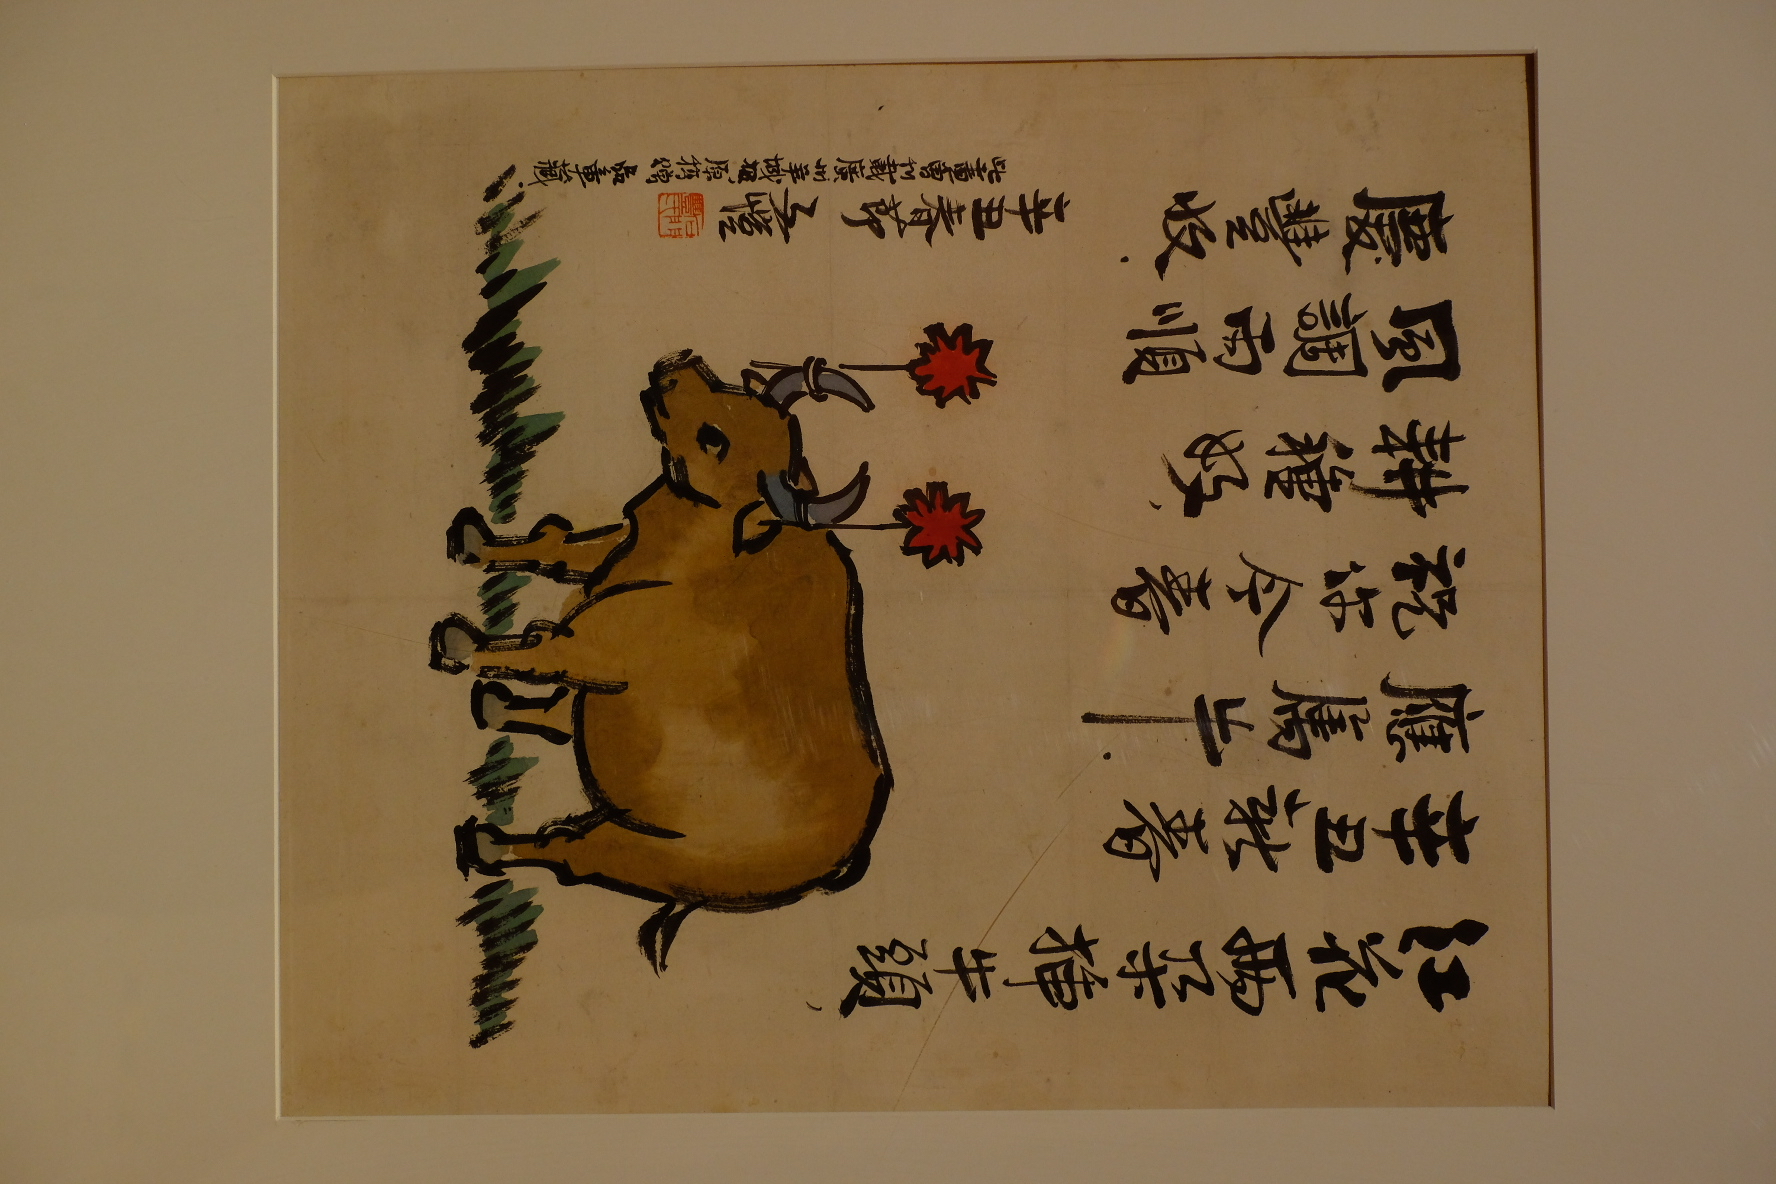 红花兩朵揷牛頭，
辛丑新春
應属牛．
祝你今春
耕種好，
風調雨順
慶豐收．
辛丑春節 子愷
此畫曾刊載廣州羊城報，原稿贈 品章藏．
石門豐氏